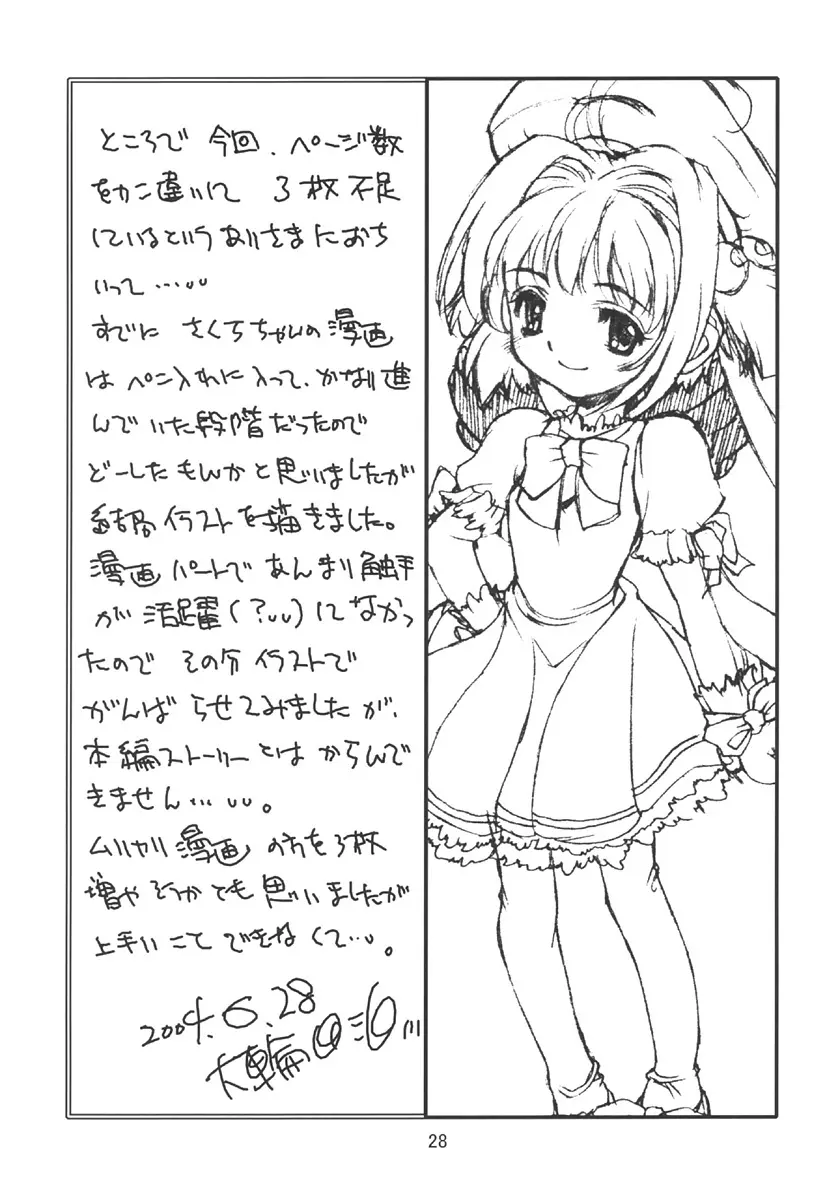 ところで 今回、ページ数
をカン違いして 3枚不足
しているというありさまにおち
いって…。。
すでに さくらちゃんの漫画
は ペン入れに入って、かなり進
んでいた段階だったので
どーしたもんかと思いましたが
結局イラストを描きました。
漫画パートであんまり触手
が 活躍(?。。)しなかっ
たので その分イラストで
がんばらせてみましたが、
本編ストーリーとはからんで
きません…。。。
ムリヤリ漫画の方を3枚
増やそうかとも思いましたが
上手いことできなくて…。。
2004.6.28
大輪
28